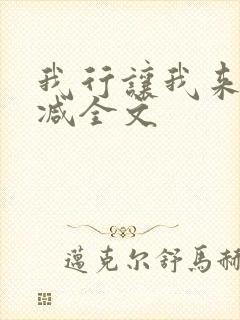 我行讓我来
减全文
邁克尔舒馬赫